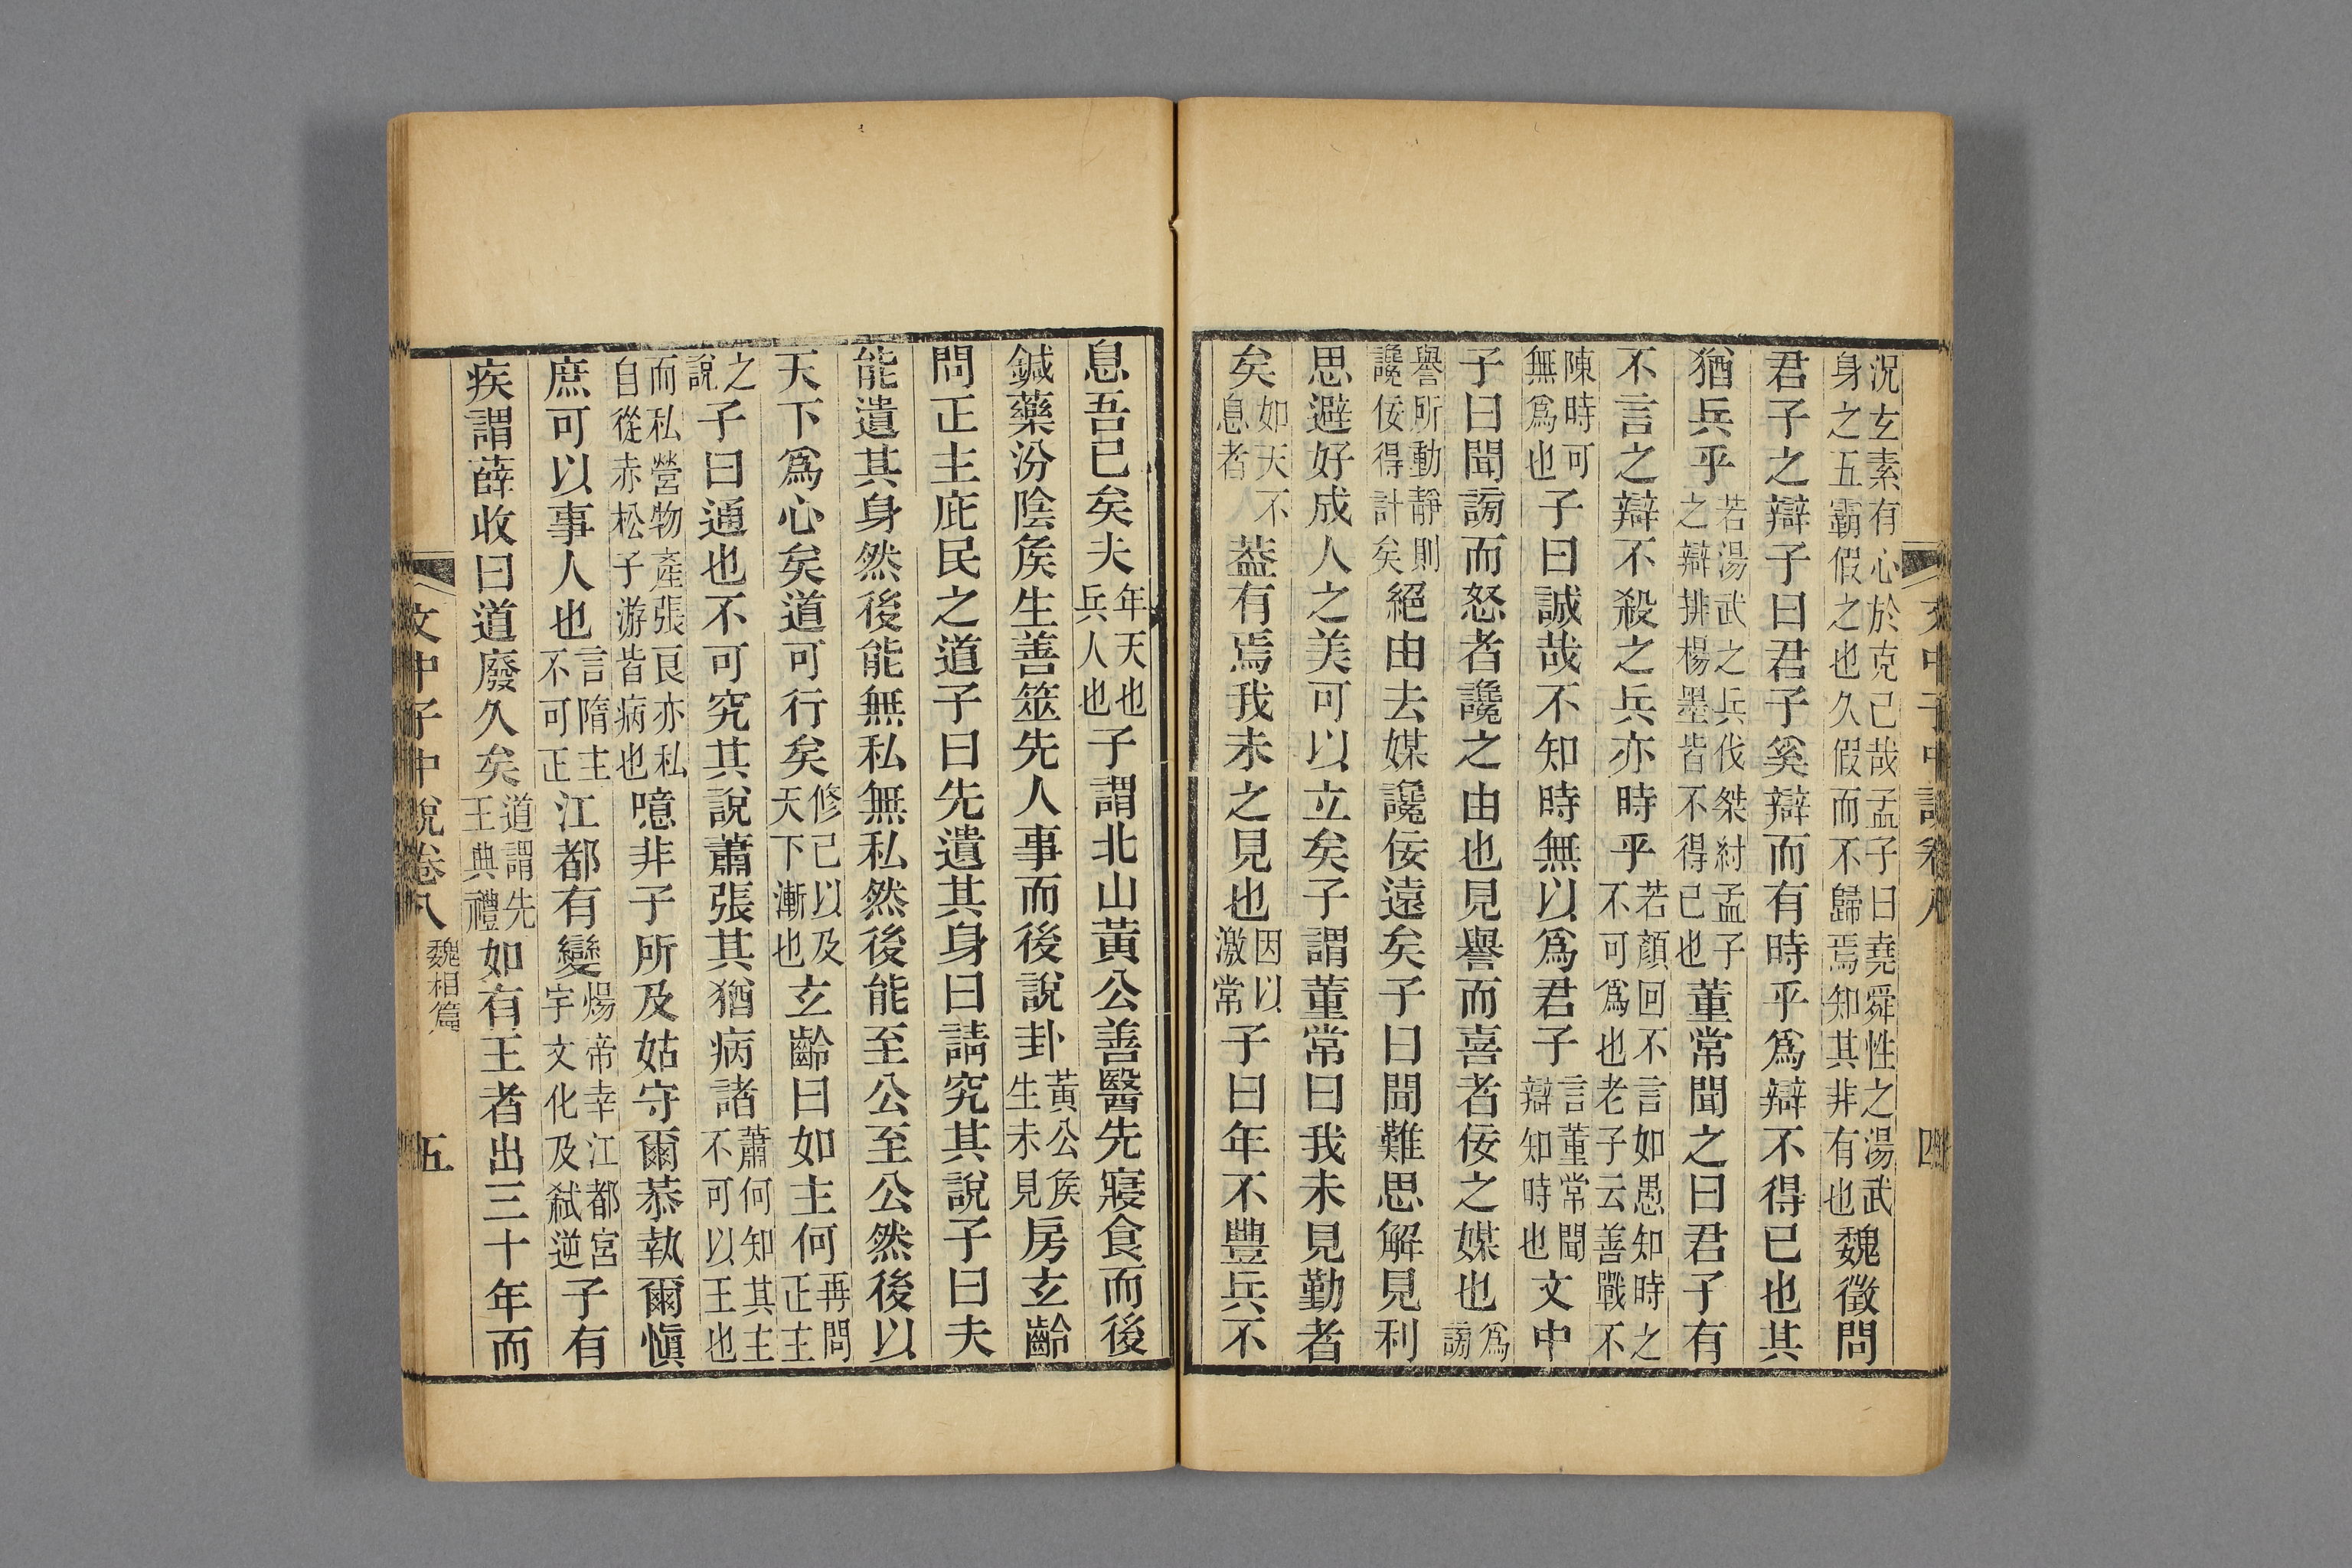 況玄素有心於克己哉孟子曰堯舜性之湯武身之五霸假之也久假而不歸焉知其非有也魏徵問
君子之辯子曰君子奚辯而有時乎爲辯不得已也其
猶兵乎若湯武之兵伐桀紂孟子之辯排楊墨皆不得已也董常聞之曰君子有
不言之辯不殺之兵亦時乎若顏回不言如愚知時之不可爲也老子云善戰不
陳時可無爲也子曰誠哉不知時無以爲君子言董常聞辯知時也文中
子曰聞謗而怒者讒之由也見譽而喜者佞之媒也爲謗
譽所動靜則讒佞得計矣絕由去媒讒佞遠矣子曰聞難思解見利
思避好成人之美可以立矣子謂董常曰我未見勤者
矣如天不息者人蓋有焉我未之見也因以激常子曰年不豐兵不
文中子中說卷八 四
息吾已矣夫年天也兵人也子謂北山黃公善醫先寢食而後
鍼藥汾陰矦生善筮先人事而後說卦黃公矦生未見房玄齡
問正主庇民之道子曰先遺其身曰請究其說子曰夫
能遺其身然後能無私無私然後能至公至公然後以
天下爲心矣道可行矣修己以及天下漸也玄齡曰如主何再問正主
之說子曰通也不可究其說蕭張其猶病諸蕭何知其主不可以王也
而私營物產張良亦私自從赤松子游皆病也噫非子所及姑守爾恭執爾愼
庶可以事人也言隋主不可正江都有變煬帝幸江都宮宇文化及弒逆子有
疾謂薛收曰道廢久矣道謂先王典禮如有王者出三十年而
文中子中說卷八 魏相篇 五